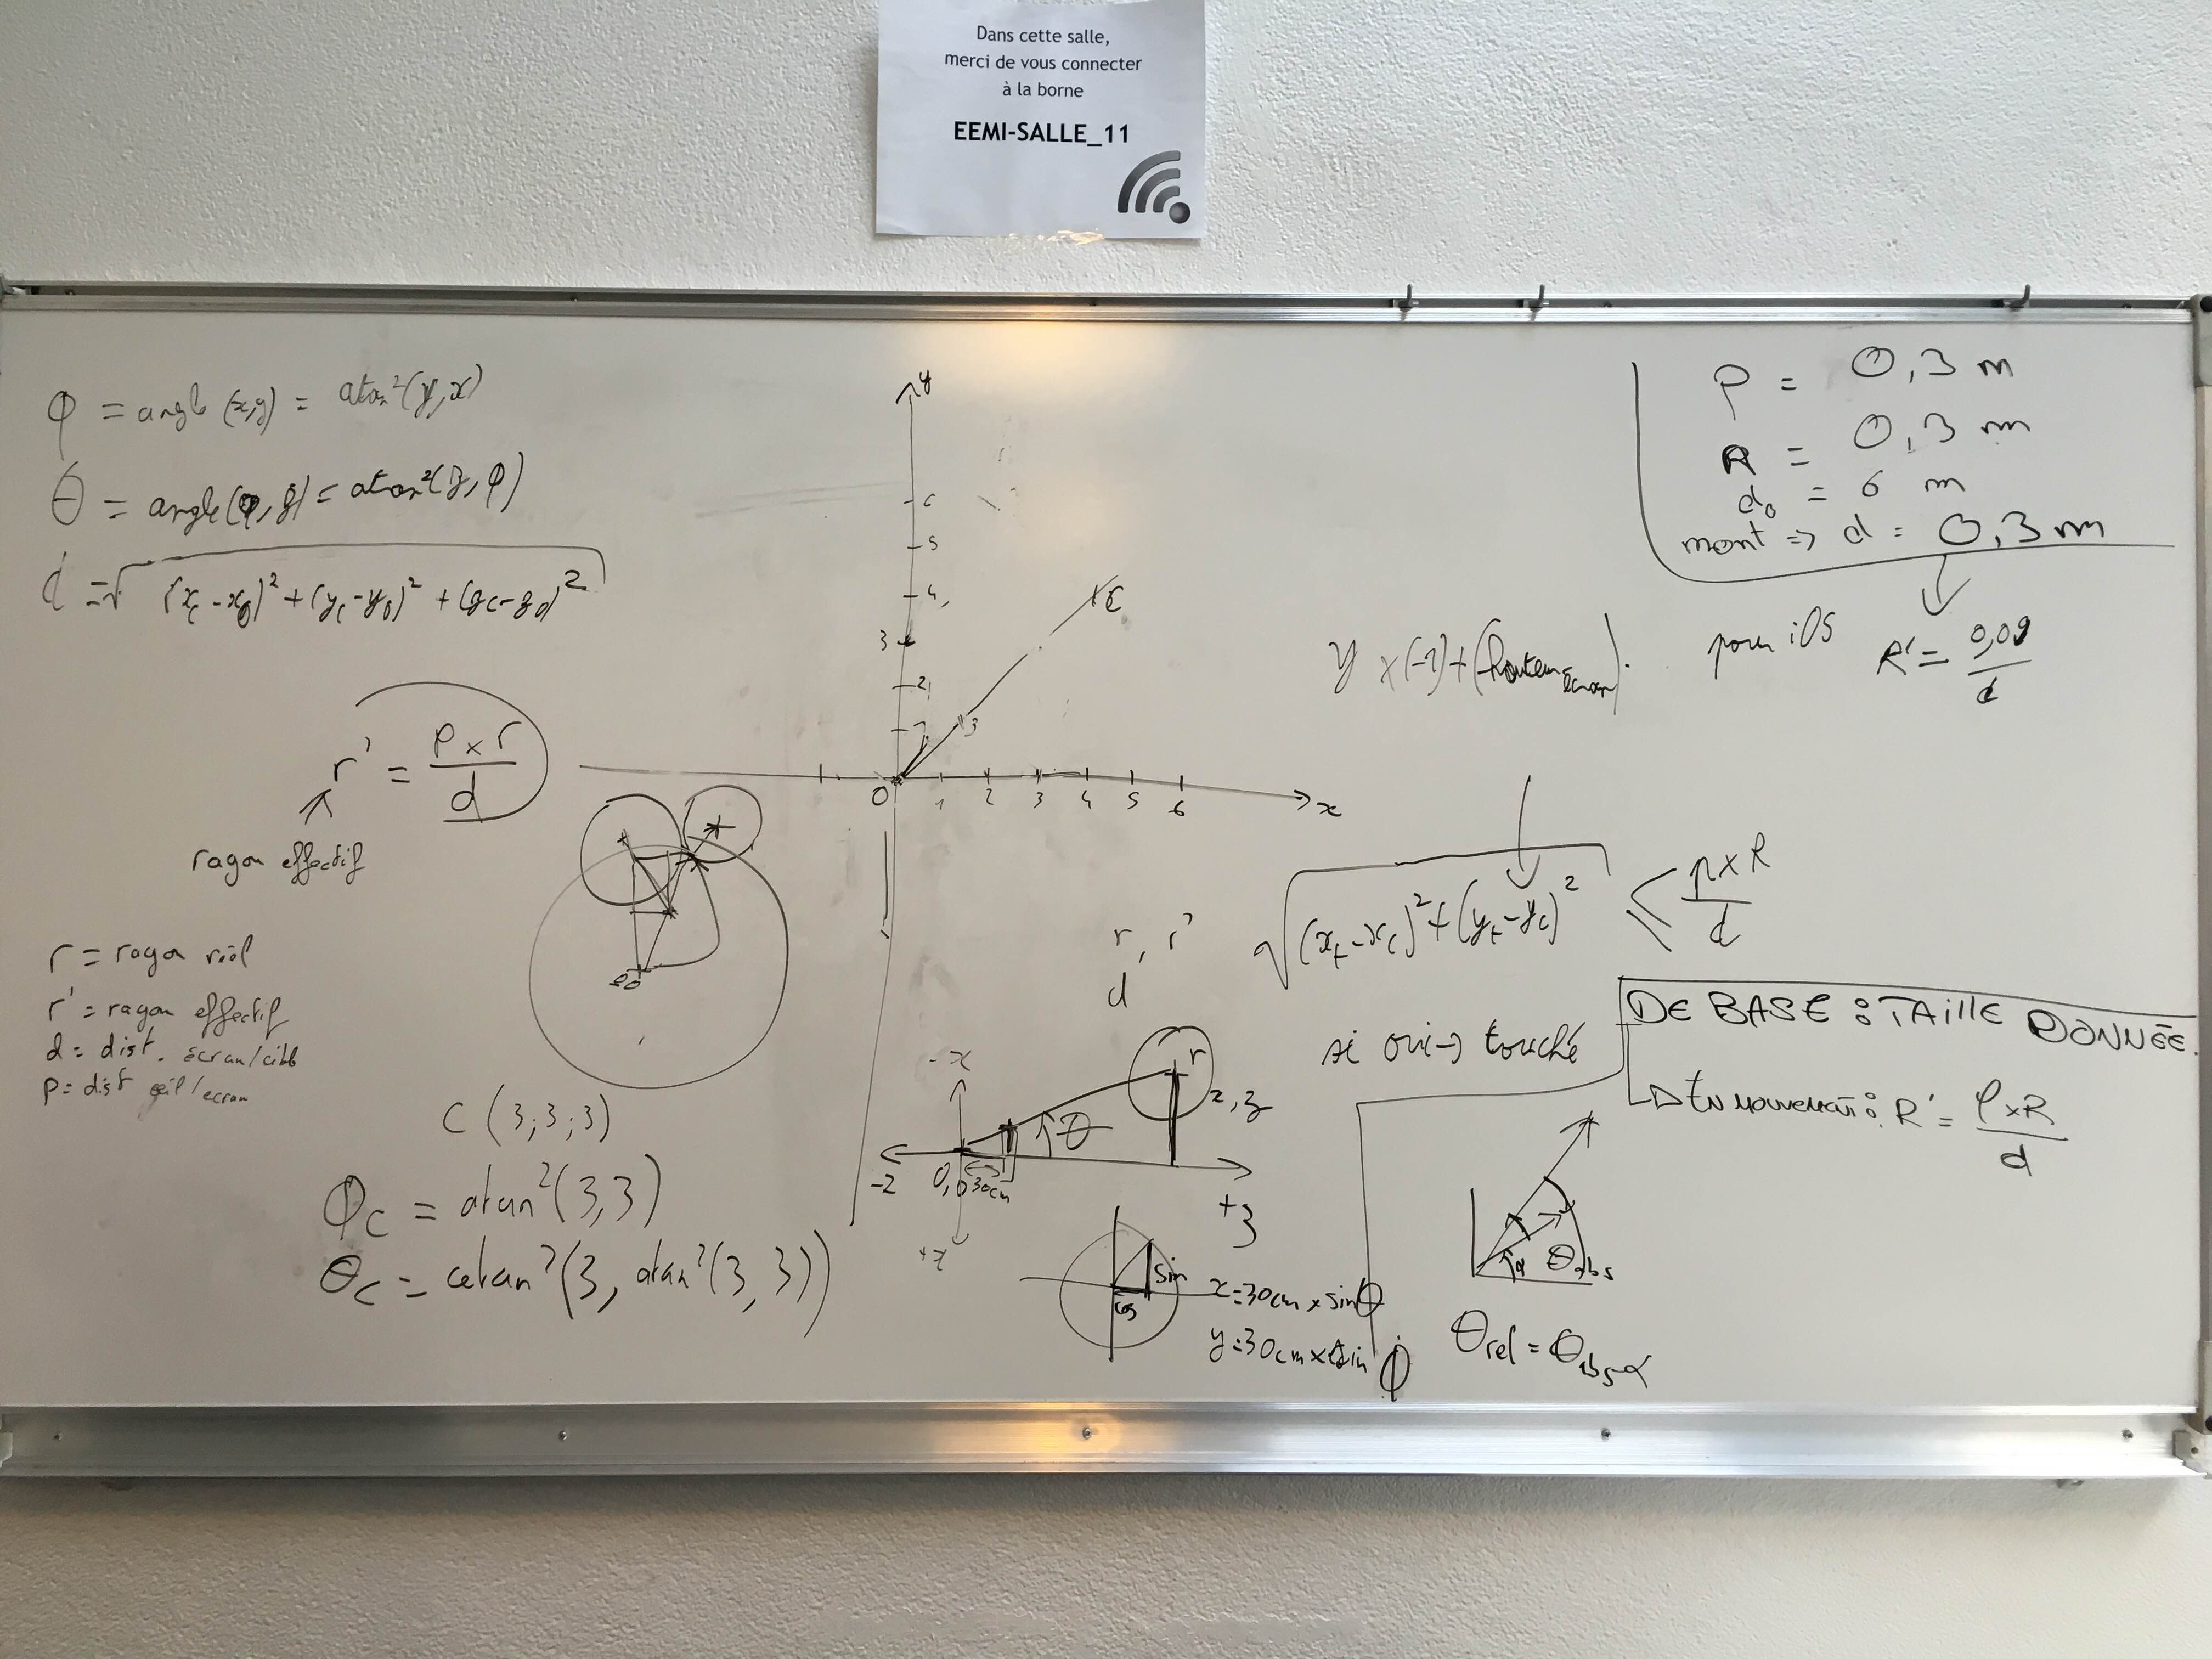 Dans cette salle,
merci de vous connecter
à la borne
EEMI-SALLE_11
φ = angle (x,y) = atan²(y,x)
θ = angle(φ,z) = atan²(z,φ)
d = √(xc-x0)²+(yc-y0)²+(zc-z0)²
r' = p×r/d
rayon effectif
r = rayon réel
r' = rayon effectif
d = dist. écran/cible
p = dist œil/ecran
C (3;3;3)
φc = atan²(3,3)
θc = atan²(3, atan²(3,3))
y
6
5
4
3
2
1
C
3
0 1 2 3 4 5 6 x
r, r'
d
-x
r
θ
-z 0,0 30cm
+z
+x
sin
cos
x=30cm×sinθ
y=30cm×sin φ
P = 0,3 m
R = 0,3 m
d0 = 6 m
mont => d = 0,3 m
y ×(-1)+(hauteur écran)
pour iOS
R' = 0,09/d
√(xt-xc)²+(yt-yc)² < p×R/d
si oui → touché
DE BASE : TAILLE DONNÉE.
EN MOUVEMENT : R' = P×R/d
α θabs
θrel = θabs-α